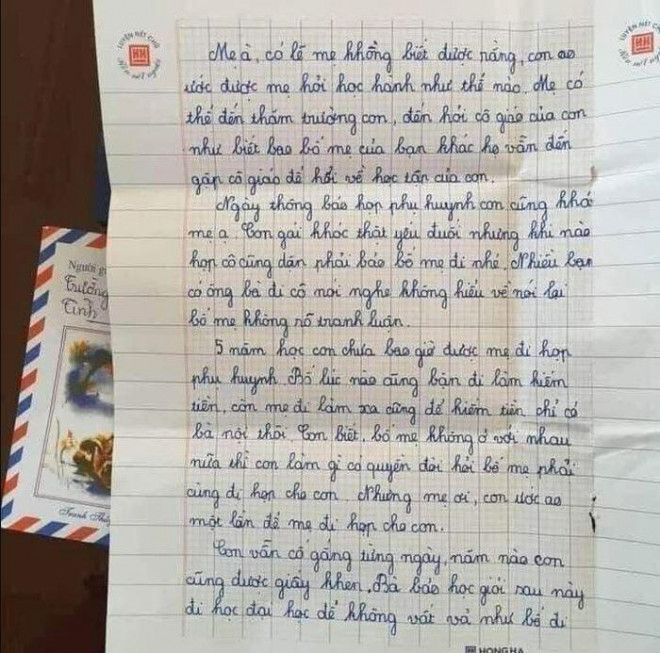 LUYỆN NÉT CHỮ
HH
Mẹ à, có lẽ mẹ không biết được rằng, con ao
ước được mẹ hỏi học hành như thế nào. Mẹ có
thể đến thăm trường con, đến hỏi cô giáo của con
như biết bao bố mẹ của bạn khác họ vẫn đến
gặp cô giáo để hỏi về học tập của con.
Ngày thông báo họp phụ huynh con cũng khó
mẹ ạ. Con gái khóc thật yếu đuối nhưng khi nào
họp cô cũng dặn phải bảo bố mẹ đi nhé. Nhiều bạn
có ông bà đi cô nói nghe không hiểu về nói lại
bố mẹ không rõ tranh luận.
5 năm học con chưa bao giờ được mẹ đi họp
phụ huynh. Bố lúc nào cũng bận đi làm kiếm
tiền, còn mẹ đi làm xa cũng để kiếm tiền chỉ có
bà nội thôi. Con biết, bố mẹ không ở với nhau
nữa thì con làm gì có quyền đòi hỏi bố mẹ phải
cùng đi họp cho con. Nhưng mẹ ơi, con ước ao
một lần để mẹ đi họp cho con.
Con vẫn cố gắng từng ngày, năm nào con
cũng được giấy khen, Bà bảo học giỏi sau này
đi học đại học để không vất vả như bố đi
HONG HA
Người g
Trường
Tỉnh
Tranh